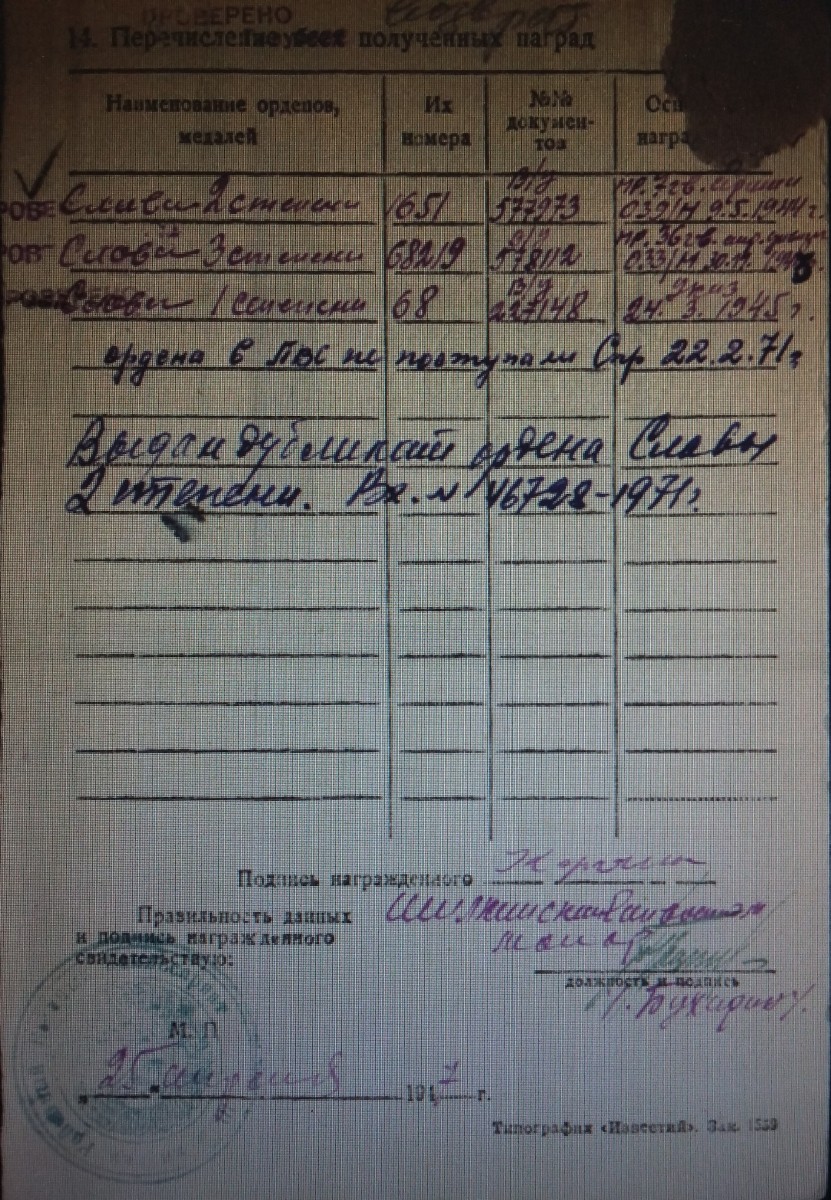 ПРОВЕРЕНО
14. Перечисление всех полученных наград
Наименование орденов, медалей
Их номера
№№ документов
Славы 2 степени 1651 в/д 577973 пр. 7 гв. армии 039/н 9.5.1944 г.
Славы 3 степени 68219 578112 пр. 36 гв.
Славы 1 степени 68 в/д 227148 указ 24.3.1945 г.
ордена в не поступали Спр 22.2.71 г
Выдан дубликат ордена Славы
2 степени. Вх. № 46728-1971 г.
Подпись награжденного
Правильность данных
и подпись награжденного
свидетельствую:
должность и подпись
/Бухарин/
М. П.
"25" апреля 1947 г.
Типография «Известий». Зак. 1559